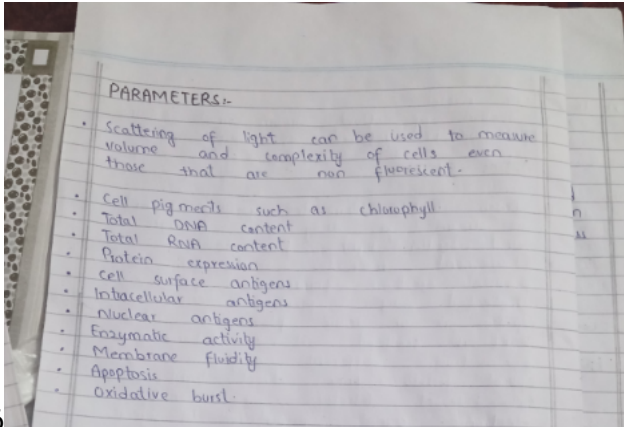 PARAMETERS:-
• Scattering of light can be used to measure
volume and complexity of cells even
those that are non fluorescent.
• Cell pigments such as chlorophyll
• Total DNA content
• Total RNA content
• Protein expression
• Cell surface antigens
• Intracellular antigens
• Nuclear antigens
• Enzymatic activity
• Membrane fluidity
• Apoptosis
• Oxidative burst.